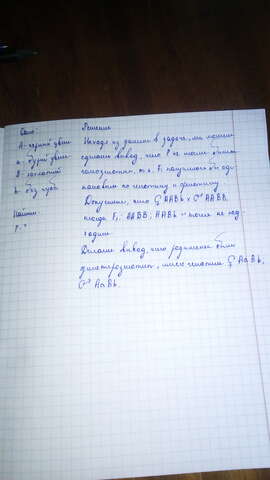 Дано:
А - черный цвет
а - бурый цвет
B - хохлатость
b - без чуба
Найти:
P - ?
Решение
Исходя из данных в задаче, мы можем
сделать вывод, что P не могли быть
гомозиготны, т.к. F₁ получилось бы оди
наковым по генотипу и фенотипу.
Допустим, что ♀ AABb x ♂ AABB,
тогда F₁: AABB; AABb - тоже не под
ходит.
Делаем вывод, что родители были
дигетерозиготны, имея генотипы ♀ AaBb,
♂ AaBb.